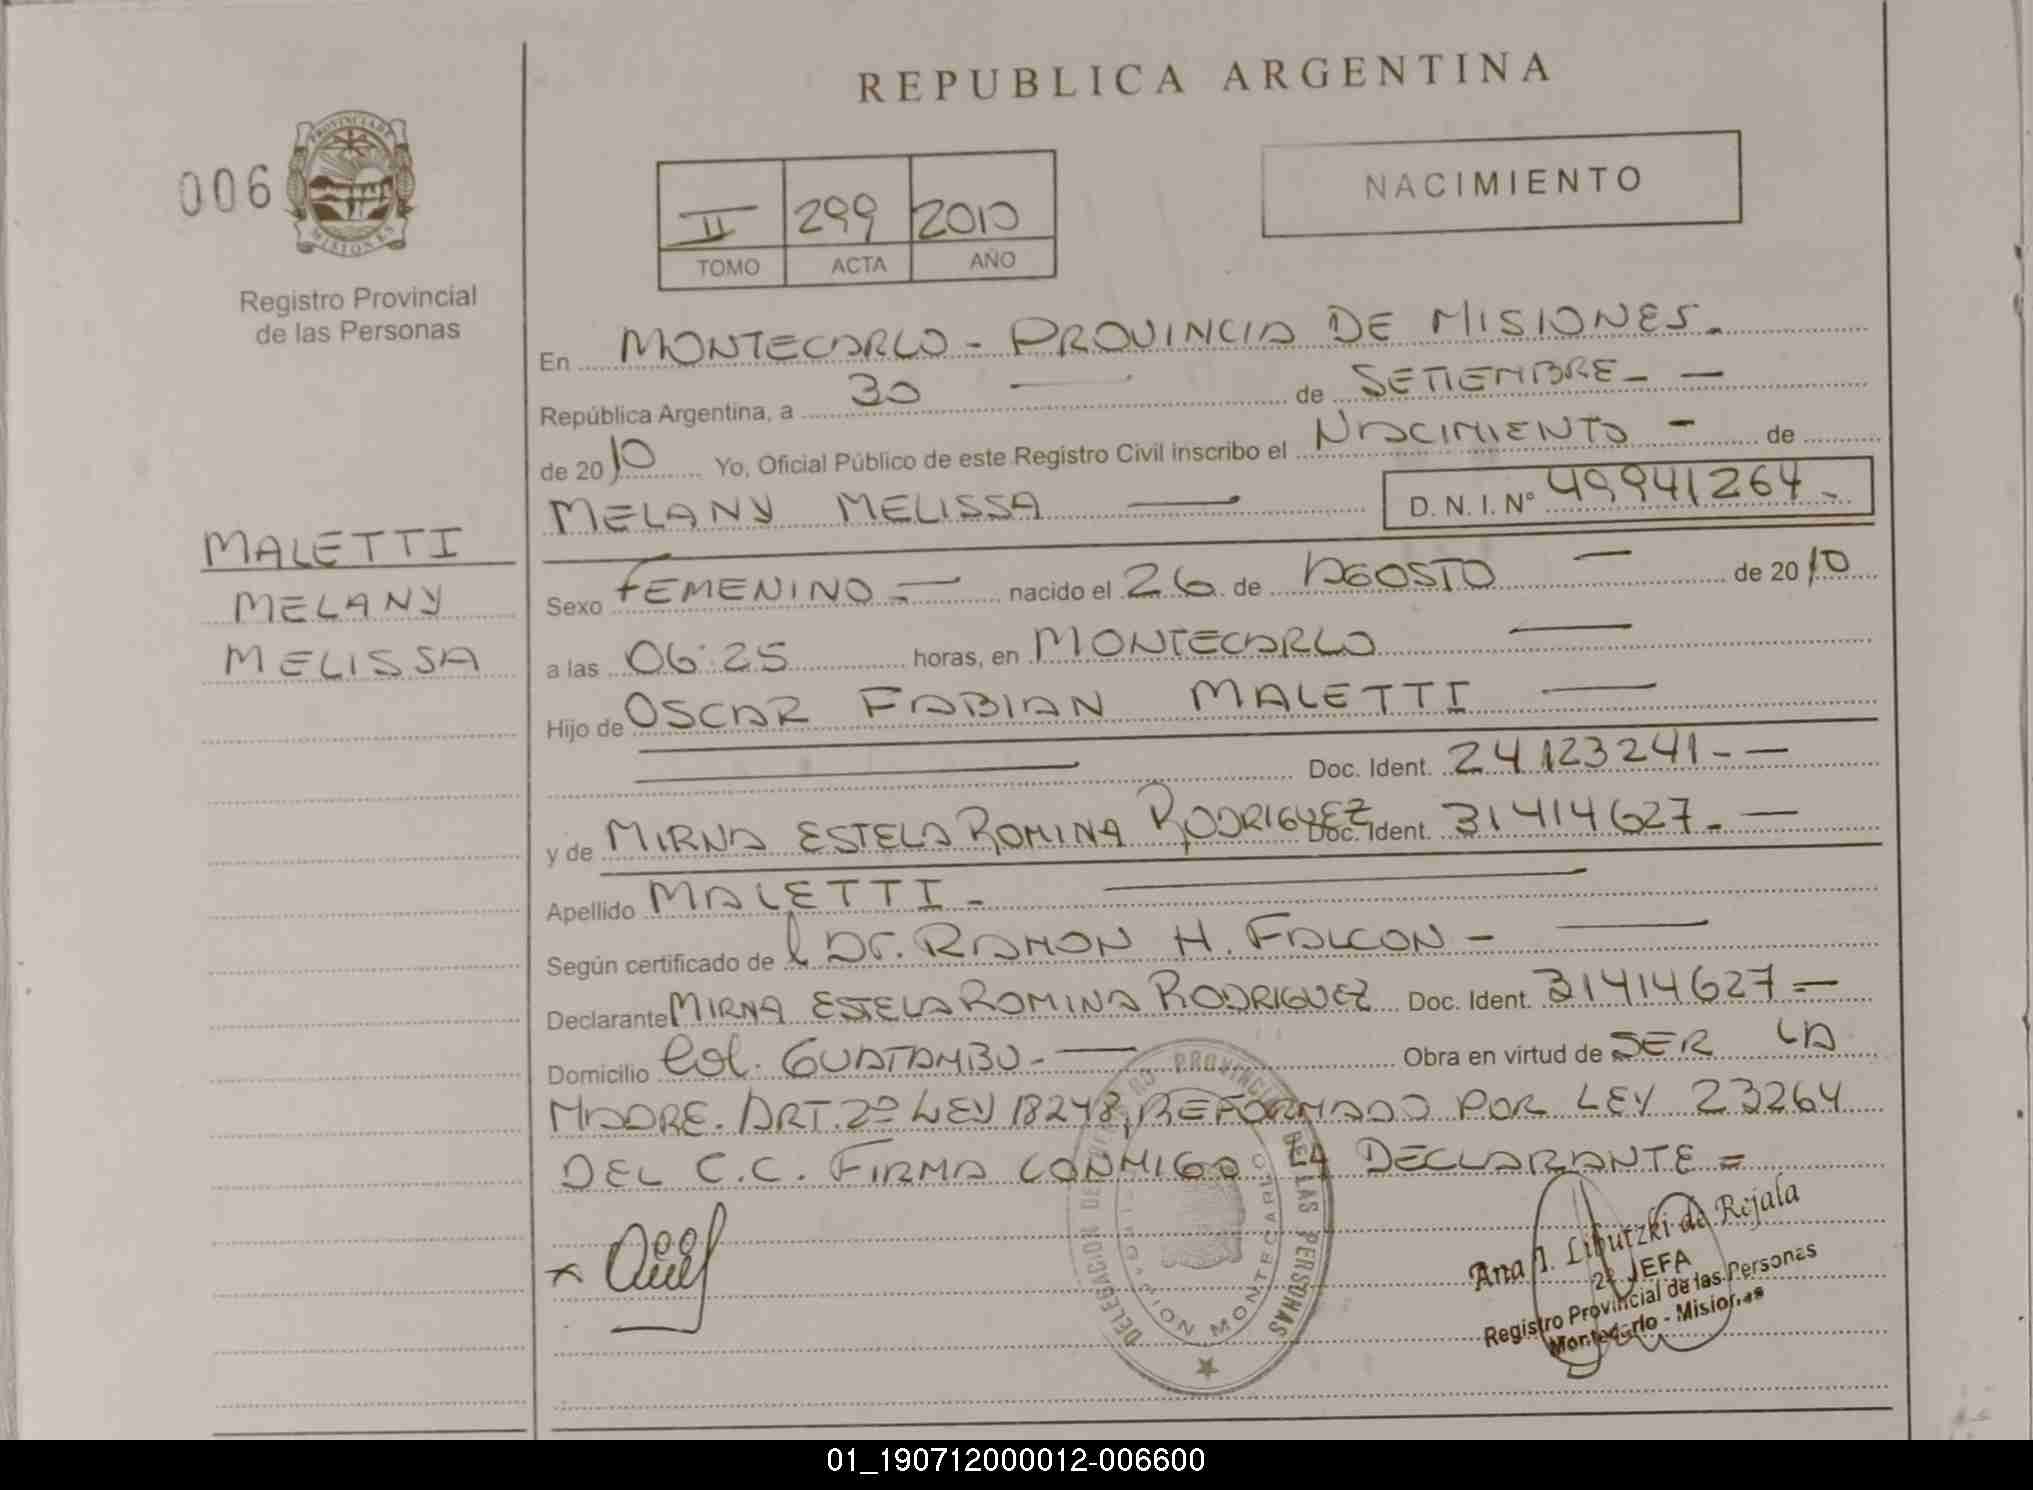 REPUBLICA ARGENTINA
006
PROVINCIA DE
MISIONES
Registro Provincial
de las Personas
NACIMIENTO
II 299 2010
TOMO ACTA AÑO
En MONTECARLO - PROVINCIA DE MISIONES.
República Argentina, a 30 — de SETIEMBRE - —
de 2010 Yo, Oficial Público de este Registro Civil inscribo el NACIMIENTO - de
MELANY MELISSA — D. N. I. N° 49941264 -
MALETTI
MELANY
MELISSA
Sexo FEMENINO - — nacido el 26 de AGOSTO — de 2010
a las 06:25 horas, en MONTECARLO —
Hijo de OSCAR FABIAN MALETTI —
Doc. Ident. 24123241 - —
y de MIRNA ESTELA ROMINA RODRIGUEZ Doc. Ident. 31414627 - —
Apellido MALETTI - —
Según certificado de Dr. RAMON H. FALCON - —
Declarante MIRNA ESTELA ROMINA RODRIGUEZ Doc. Ident. 31414627 —
Domicilio Col. GUATAMBU - — Obra en virtud de SER LA
MADRE. ART. 2º LEY 18248, REFORMADO POR LEY 23264
DEL C.C. FIRMA CONMIGO LA DECLARANTE =
DE LAS PERSONAS
MONTECARLO
Ana J. Libutzki de Rejala
2ª JEFA
Registro Provincial de las Personas
Montecarlo - Misiones
01_190712000012-006600